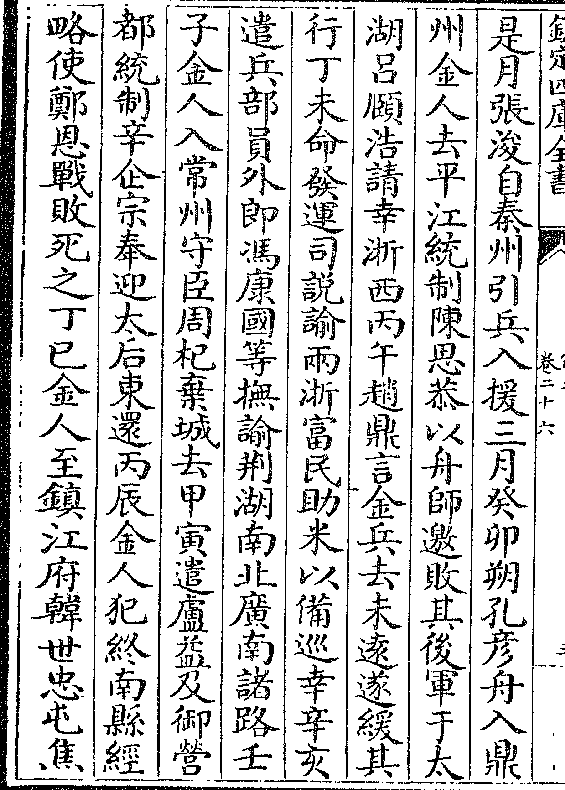 欽定四庫全書
卷二十六
是月張浚自秦州引兵入援三月癸卯朔孔彦舟入鼎
州金人去平江統制陳思恭以舟師邀敗其後軍于太
湖吕頤浩請幸浙西丙午趙鼎言金兵去未逺遂緩其
行丁未命發運司説諭兩浙富民助米以備巡幸辛亥
遣兵部員外郎馮康國等撫諭荆湖南北廣南諸路壬
子金人入常州守臣周杞棄城去甲寅遣盧益及御營
都統制辛企宗奉迎太后東還丙辰金人犯終南縣經
略使鄭恩戰敗死之丁巳金人至鎮江府韓世忠屯焦